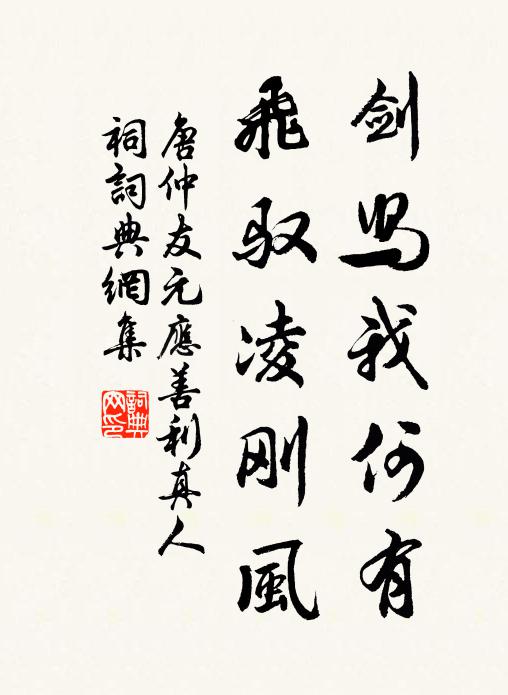 剑舄我何有
飛驭凌刚風
唐仲友元應善利真人
祠詞典網集
詞典网印